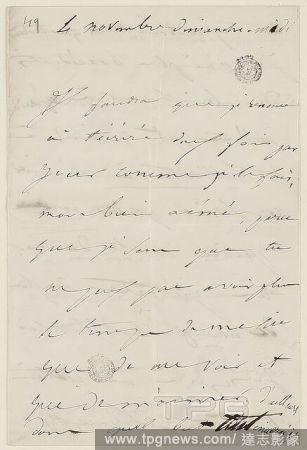 49
4 novembre dimanche midi
Il faudra que je renonce
à t'écrire deux fois par
jour comme je le fais,
mon bien aimé, parce
que je sens que tu
ne peux pas avoir plus
le temps de me lire
que de me voir et
que de m'aimer d'ailleurs
TPG
www.tpgnews.com / 達志影像